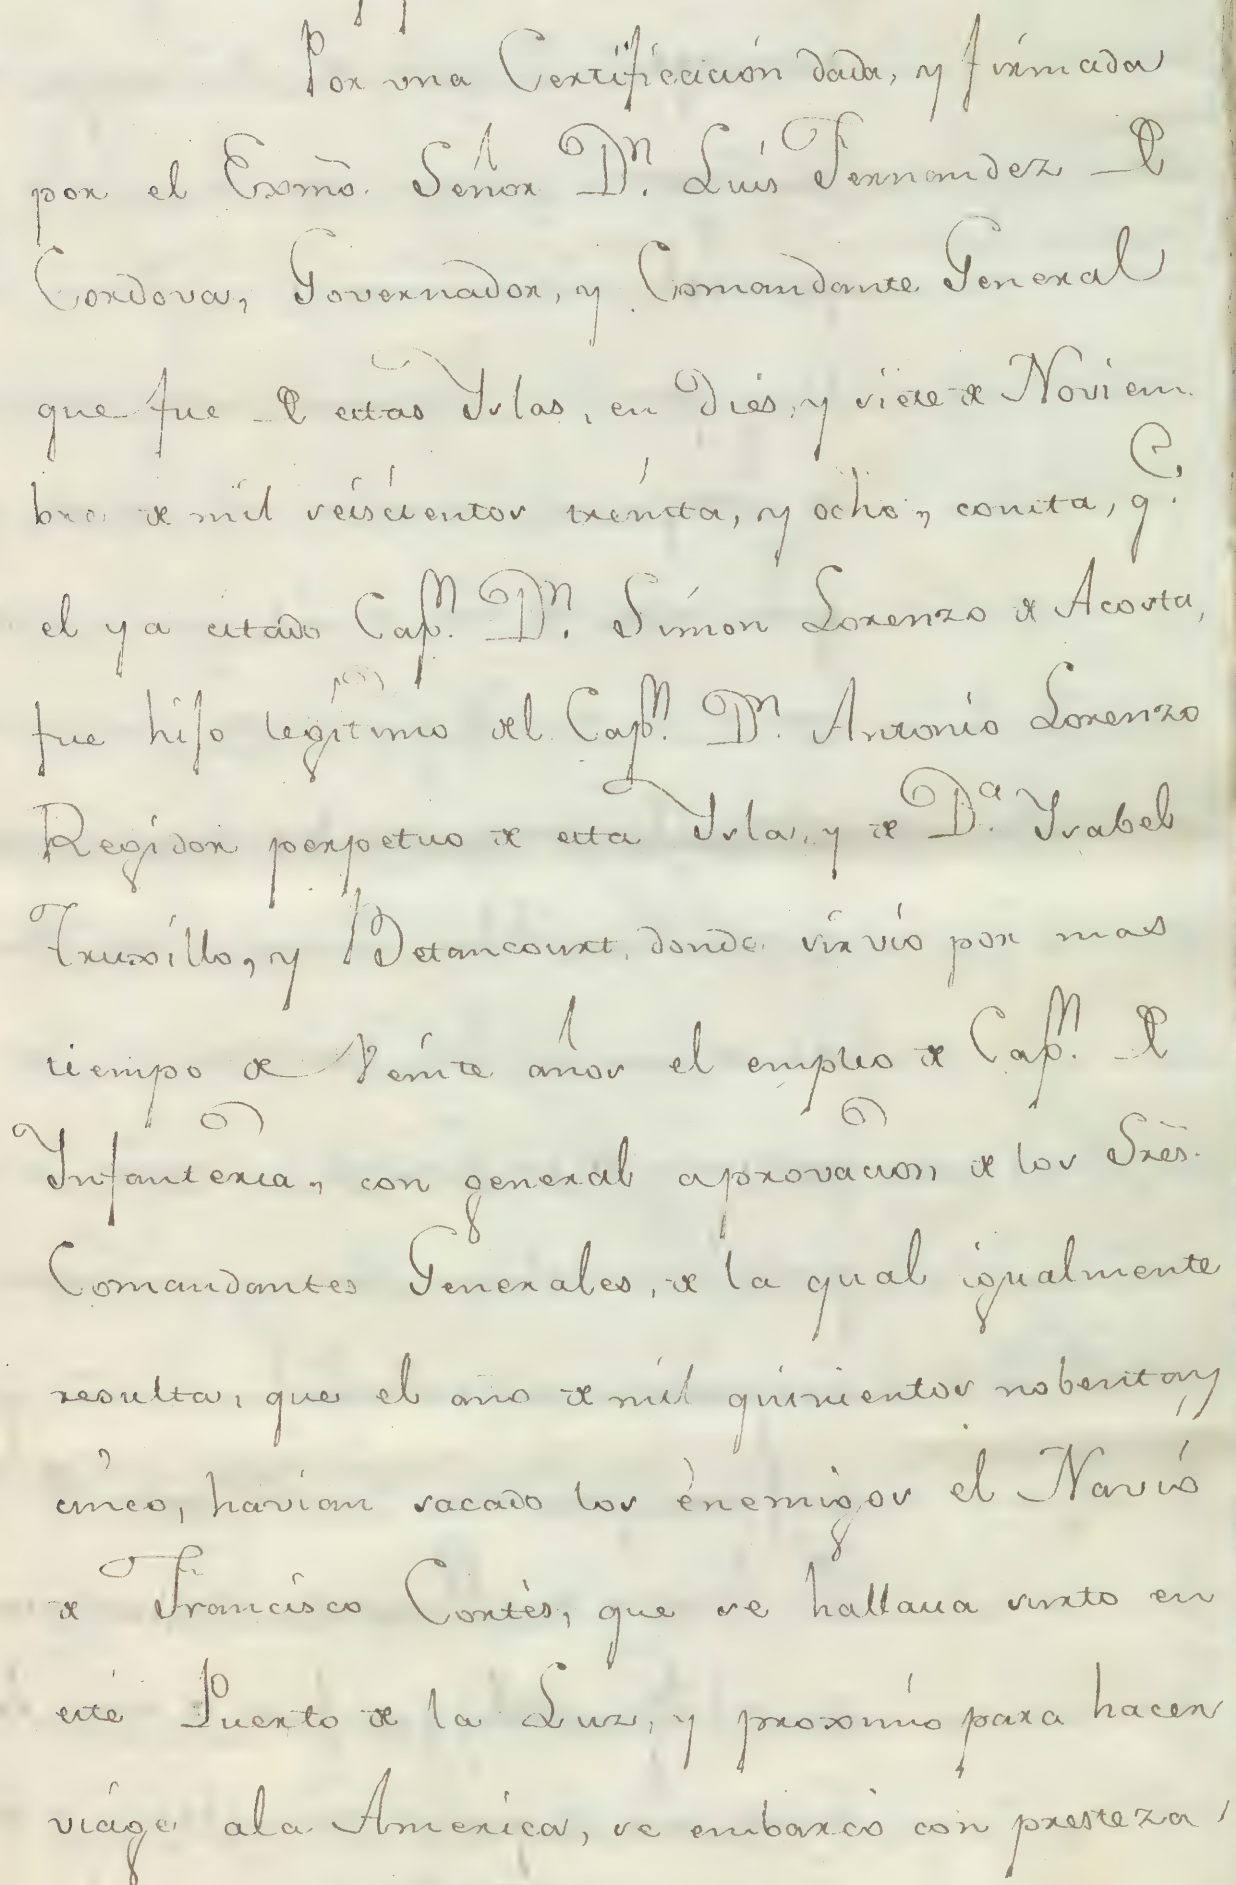 Por una Certificacion dada, y firmada
por el Exmõ. Señor Dn. Luis Fernandez de
Cordova, Governador, y Comandante General
que fue de estas Yslas, en dies, y siete de Noviem
bre de mil seiscientos treintta, y ocho, consta, qe.
el ya citado Capn. Dn. Simon Lorenzo de Acosta,
fue hijo legitimo del Capn. Dn. Antonio Lorenzo
Regidor perpetuo de esta Ysla, y de Da. Ysabel
Truxillo, y Betancourt, donde sirvio por mas
tiempo de Veinte años el empleo de Capn. de
Infanteria, con general aprovacion de los Sres.
Comandantes Generales, de la qual igualmente
resulta, que el año de mil quinientos nobenta y
cinco, havian sacado los enemigos el Navio
de Francisco Cortès, que se hallava surto en
este Puerto de la Luz, y proximo para hacer
viage ala America, se embarcò con presteza